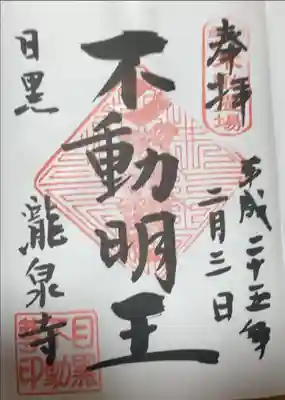 奉拝
平成二十五年
二月三日
不動明王
目黒
瀧泉寺
目黒
不動